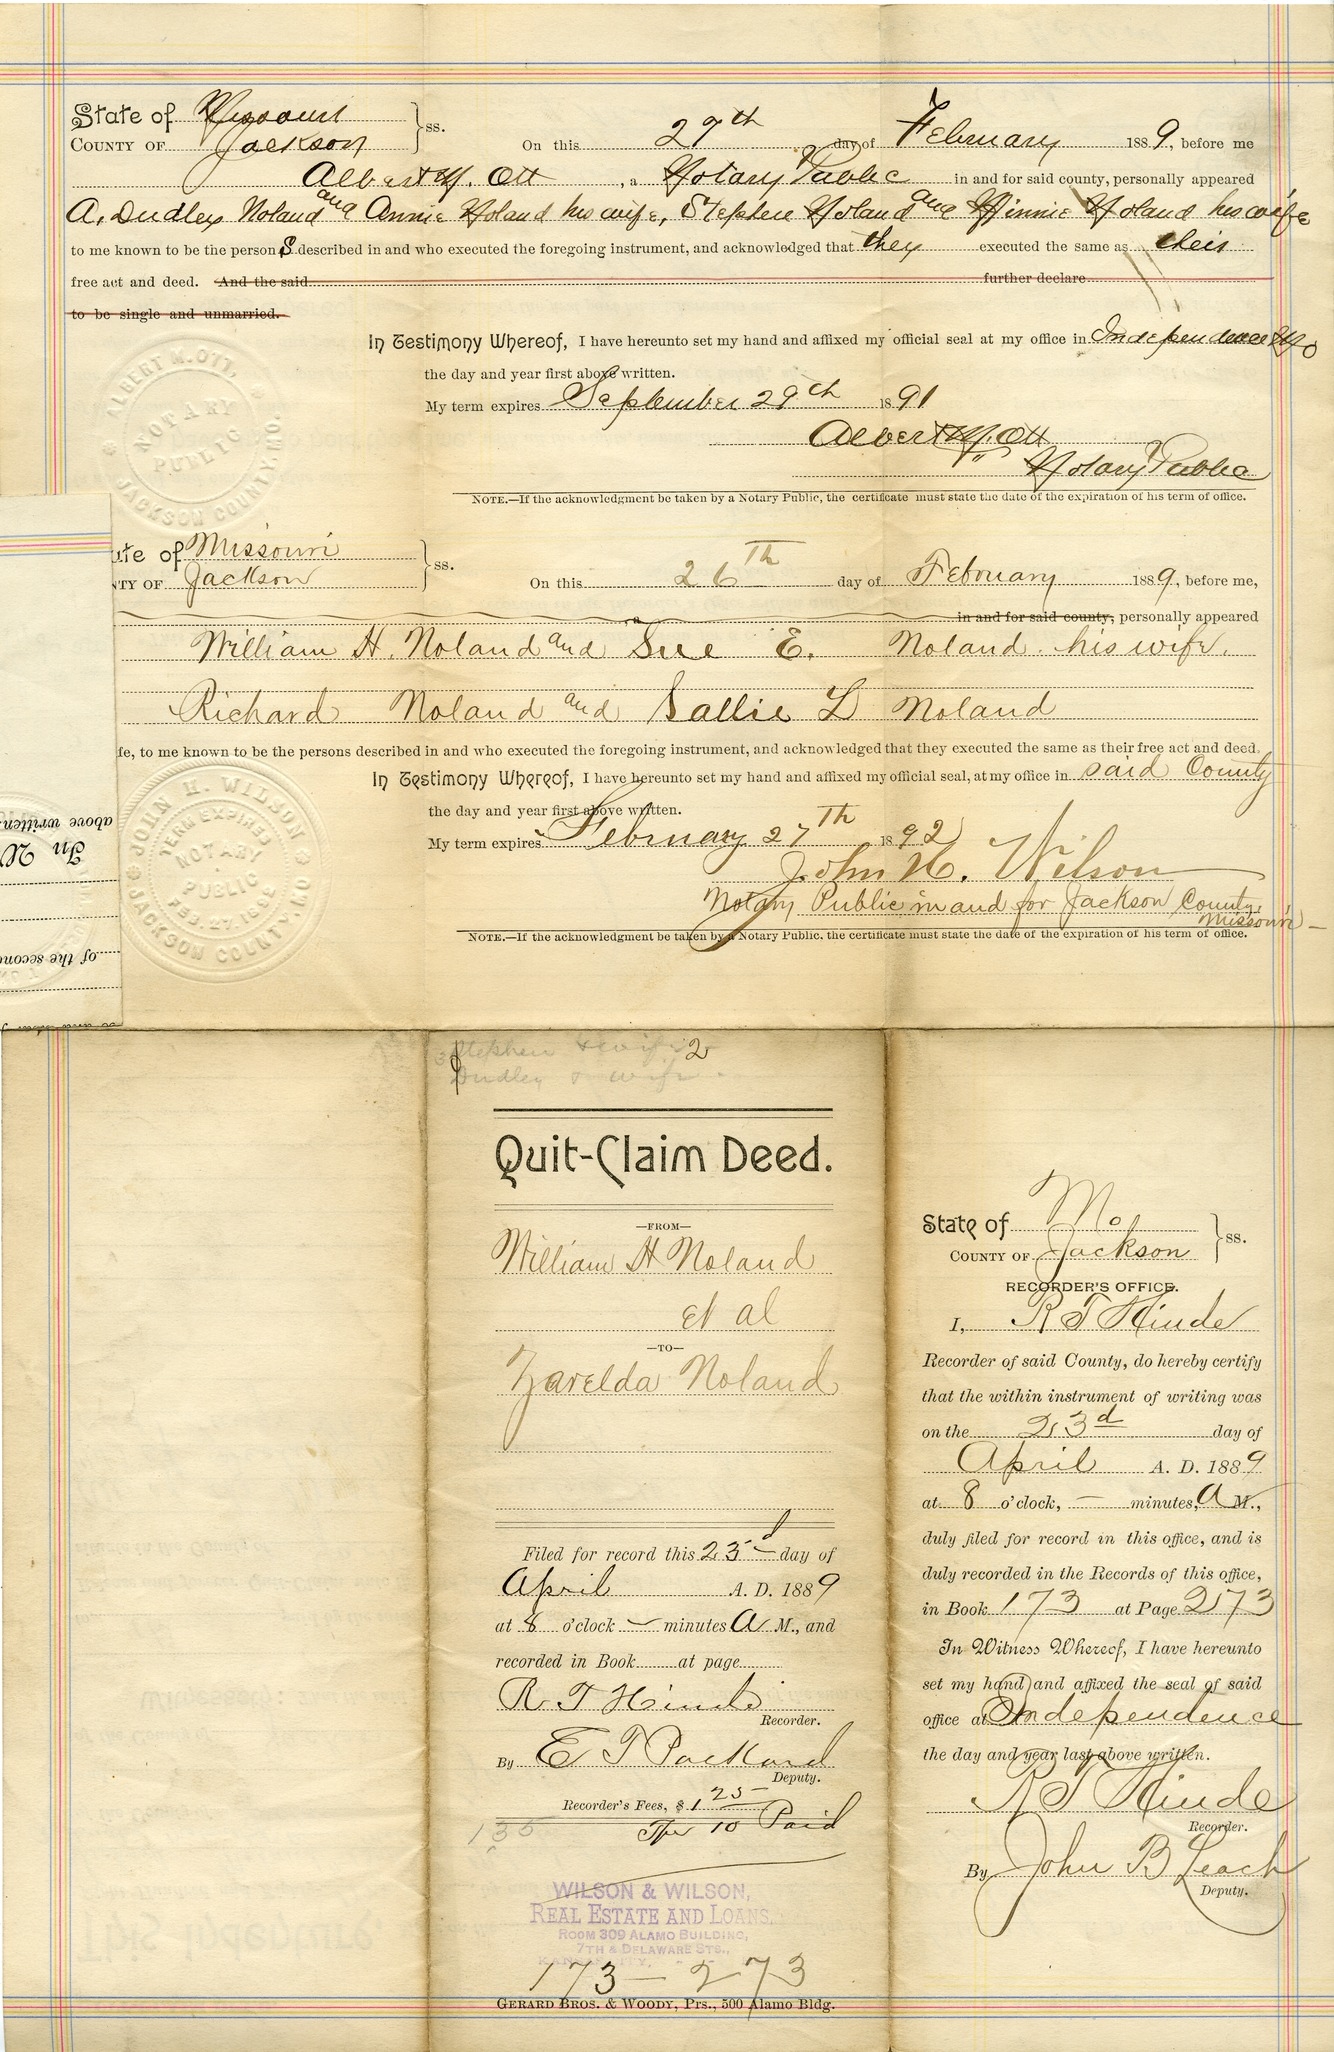 State of Missouri
COUNTY OF Jackson } ss.
On this 27th day of February 1889, before me
Albert M. Ott, a Notary Public in and for said county, personally appeared
A. Dudley Noland and Annie Noland his wife, Stephen Noland and Minnie Noland his wife
to me known to be the persons described in and who executed the foregoing instrument, and acknowledged that they executed the same as their
free act and deed. And the said further declare
to be single and unmarried.
In Testimony Whereof, I have hereunto set my hand and affixed my official seal at my office in Independence Mo
the day and year first above written.
My term expires September 29th 1891
Albert M. Ott
Notary Public
NOTE.—If the acknowledgment be taken by a Notary Public, the certificate must state the date of the expiration of his term of office.
ALBERT M. OTT,
NOTARY
PUBLIC
JACKSON COUNTY, MO.
ate of Missouri
NTY OF Jackson } ss.
On this 26th day of February 1889, before me,
in and for said county, personally appeared
William H. Noland and Sue E. Noland his wife.
Richard Noland and Sallie L Noland
fe, to me known to be the persons described in and who executed the foregoing instrument, and acknowledged that they executed the same as their free act and deed.
In Testimony Whereof, I have hereunto set my hand and affixed my official seal, at my office in said County
the day and year first above written.
My term expires February 27th 1892
John H. Wilson
Notary Public in and for Jackson County,
Missouri
NOTE.—If the acknowledgment be taken by a Notary Public, the certificate must state the date of the expiration of his term of office.
JOHN H. WILSON
TERM EXPIRES
NOTARY
PUBLIC
FEB. 27. 1892
JACKSON COUNTY, MO
above written.
In W
of the secon
2
Stephen & wife
Dudley & wife
Quit-Claim Deed.
—FROM—
William H Noland
et al
—TO—
Zarelda Noland
Filed for record this 23d day of
April A. D. 1889
at 8 o'clock — minutes A M., and
recorded in Book at page
R T Hinde
Recorder.
By E T Packard
Deputy.
Recorder's Fees, $1 25
10 Paid
135
WILSON & WILSON,
REAL ESTATE AND LOANS,
ROOM 309 ALAMO BUILDING,
7TH & DELAWARE STS.,
KANSAS CITY,
173 - 273
GERARD BROS. & WOODY, Prs., 500 Alamo Bldg.
State of Mo
COUNTY OF Jackson } ss.
RECORDER'S OFFICE.
I, R T Hinde
Recorder of said County, do hereby certify
that the within instrument of writing was
on the 23d day of
April A. D. 1889
at 8 o'clock, — minutes, A M.,
duly filed for record in this office, and is
duly recorded in the Records of this office,
in Book 173 at Page 273
In Witness Whereof, I have hereunto
set my hand and affixed the seal of said
office at Independence
the day and year last above written.
R T Hinde
Recorder.
By John B Leach
Deputy.
This Indenture
Witnesseth: